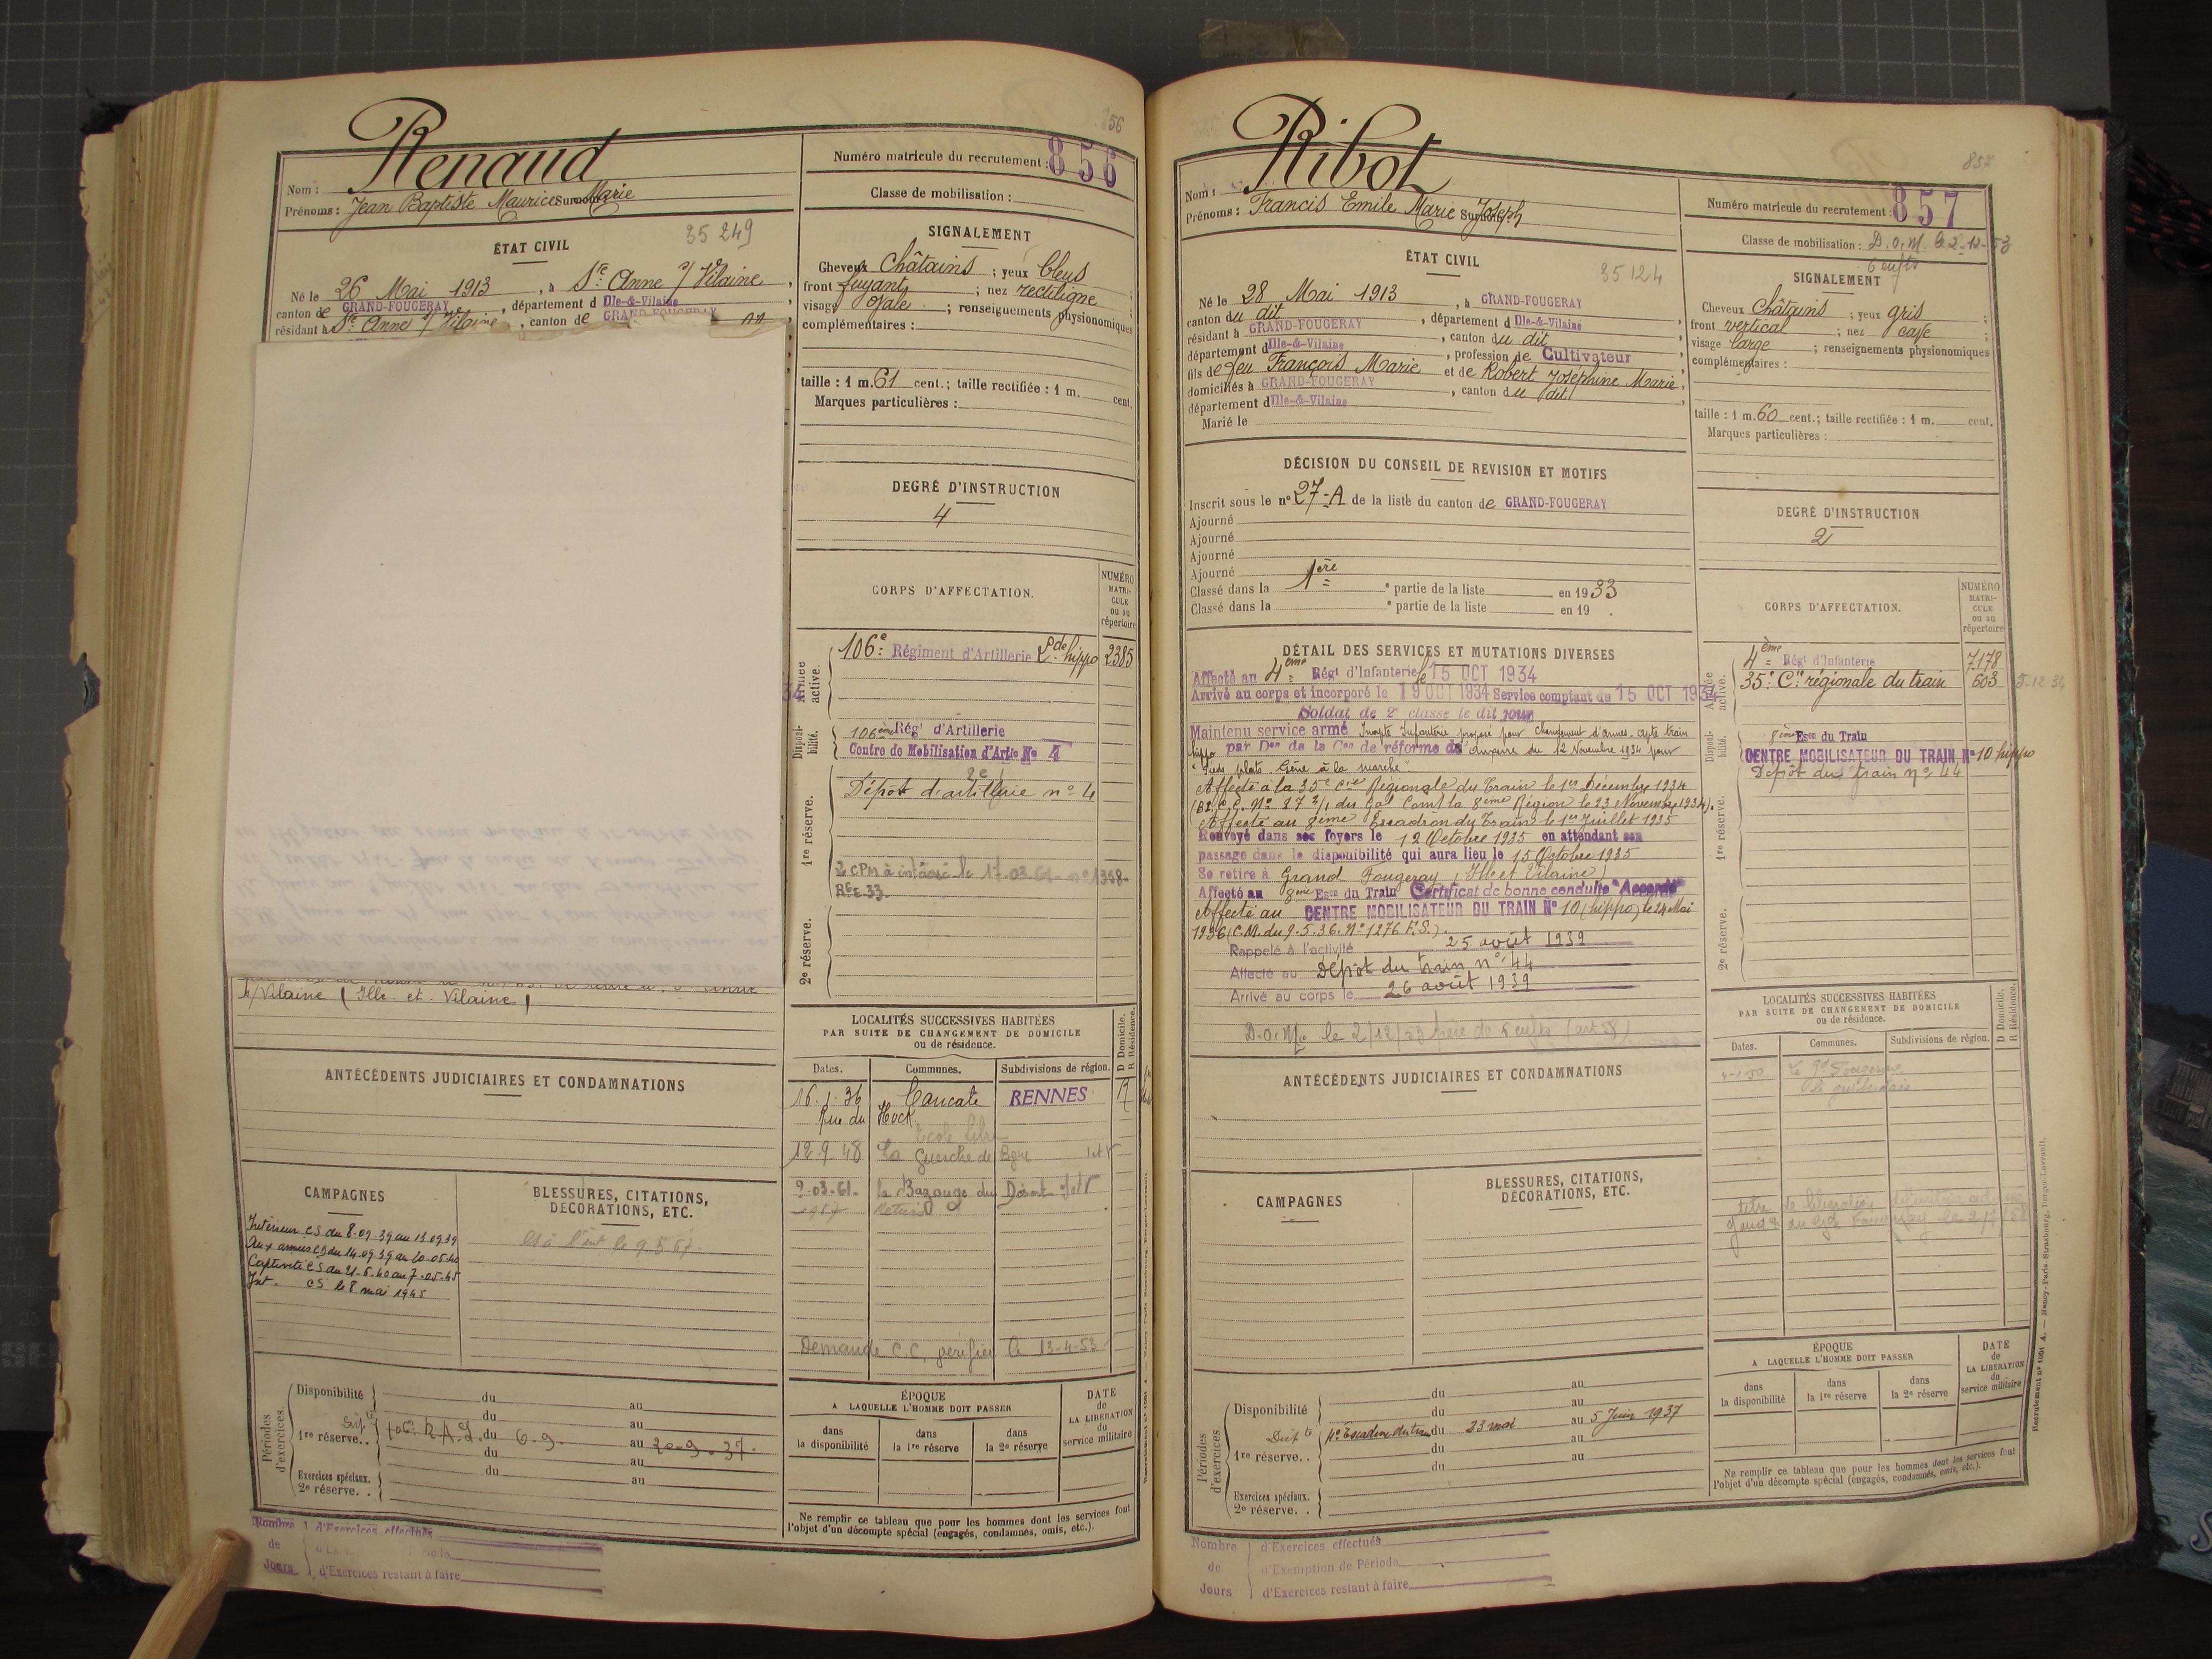 856
Renaud
Nom :
Prénoms : Jean Baptiste Maurice Surnoms : Marie
Numéro matricule du recrutement : 856
Classe de mobilisation :
ÉTAT CIVIL
35 249
Né le 26 Mai 1913, à Ste Anne s/ Vilaine,
canton de GRAND-FOUGERAY, département d Ille-&-Vilaine
résidant à Ste Anne s/ Vilaine, canton de GRAND-FOUGERAY
s/Vilaine (Ille et Vilaine)
SIGNALEMENT
Cheveux Châtains ; yeux bleus
front fuyant ; nez rectiligne ;
visage ovale ; renseignements physionomiques
complémentaires :
taille : 1 m. 61 cent. ; taille rectifiée : 1 m. cent.
Marques particulières :
DEGRÉ D'INSTRUCTION
4
CORPS D'AFFECTATION.
NUMÉRO MATRI-CULE ou au répertoire
Armée active.
106e Régiment d'Artillerie Lde hippo 2385
Disponibilité.
106ème Régt d'Artillerie
Centre de Mobilisation d'Artie No 4
1re réserve.
Dépôt d'artillerie no 4
2e CPM à intéressé le 17-03-61
2e réserve.
LOCALITÉS SUCCESSIVES HABITÉES
PAR SUITE DE CHANGEMENT DE DOMICILE
ou de résidence.
D Domicile. R Résidence.
Dates. Communes. Subdivisions de région.
16.1.36 Cancale RENNES R
Rue du Hock
Ecole libre
12.9.48 La Guerche de Bgne I et V
2-03-61 la Bazouge du Désert I et V
1967 retiré
Demande C.C. vérifiée le 13-4-53
ANTÉCÉDENTS JUDICIAIRES ET CONDAMNATIONS
CAMPAGNES
Intérieur CS du 8-09-39 au 13.09.39
Aux armées CS du 14.09.39 au 20.06.40
Captivité CS du 21.6.40 au 7.05.45
Int. CS le 8 mai 1945
BLESSURES, CITATIONS,
DÉCORATIONS, ETC.
Périodes d'exercices.
Disponibilité du au
du au
1re réserve.. 106e R.A.L. du 6.9. au 20.9.37.
du au
Exercices spéciaux. du au
2e réserve. .
ÉPOQUE
A LAQUELLE L'HOMME DOIT PASSER
dans la disponibilité
dans la 1re réserve
dans la 2e réserve
DATE de LA LIBÉRATION du service militaire
Ne remplir ce tableau que pour les hommes dont les services font
l'objet d'un décompte spécial (engagés, condamnés, omis, etc.).
Nombre de Jours
d'Exercices effectués
d'Exercices restant à faire
857
Ribot
Nom :
Prénoms : Francis Emile Marie Surnoms : Joseph
Numéro matricule du recrutement : 857
Classe de mobilisation : D.O.M. le 2-12-53
6 enfts
ÉTAT CIVIL
35124
Né le 28 Mai 1913, à GRAND-FOUGERAY
canton du dit, département d Ille-&-Vilaine,
résidant à GRAND-FOUGERAY, canton du dit,
département d Ille-&-Vilaine, profession de Cultivateur,
fils de feu François Marie et de Robert Joséphine Marie,
domiciliés à GRAND-FOUGERAY, canton du dit,
département d Ille-&-Vilaine
Marié le
SIGNALEMENT
Cheveux Châtains ; yeux gris ;
front vertical ; nez cave ;
visage large ; renseignements physionomiques
complémentaires :
taille : 1 m. 60 cent. ; taille rectifiée : 1 m. cent.
Marques particulières :
DÉCISION DU CONSEIL DE REVISION ET MOTIFS
Inscrit sous le no 27-A de la liste du canton de GRAND-FOUGERAY
Ajourné
Ajourné
Ajourné
Ajourné
Classé dans la 1ère e partie de la liste en 1933
Classé dans la e partie de la liste en 19 .
DEGRÉ D'INSTRUCTION
2
DÉTAIL DES SERVICES ET MUTATIONS DIVERSES
Affecté au 4ème Régt d'Infanterie le 15 OCT 1934
Arrivé au corps et incorporé le 19 OCT 1934 Service comptant du 15 OCT 1934
Soldat de 2e classe le dit jour
Maintenu service armé Inapte Infanterie proposé pour changement d'armes. Apte train
hippo par Don de la Con de réforme de Auxerre du 12 Novembre 1934 pour
"Pieds plats. Gêne à la marche"
Affecté à la 35e Cie Régionale du Train le 1er Décembre 1934
(B.C.C. No 87 2/1 du Gal Comt la 8ème Région le 23 Novembre 1934).
Affecté au 8ème Escadron du Train le 1er Juillet 1935
Renvoyé dans ses foyers le 12 Octobre 1935 en attendant son
passage dans la disponibilité qui aura lieu le 15 Octobre 1935
Se retire à Grand Fougeray (Ille et Vilaine)
Affecté au 8ème Eson du Train Certificat de bonne conduite "Accordé"
Affecté au CENTRE MOBILISATEUR DU TRAIN No 10 (hippo) le 24 Mai
1936 (C.M. du 9.5.36. No 1276 E.S.).
Rappelé à l'activité 25 août 1939
Affecté au Dépôt du train no 44
Arrivé au corps le 26 août 1939
D.O.Mre le 2/12/53 père de 6 enfts (art 58)
CORPS D'AFFECTATION.
NUMÉRO MATRI-CULE ou au répertoire
Armée active.
4ème Régt d'Infanterie 7178
35e Cie régionale du train 603 5-12-34
Disponibilité.
8ème Eson du Train
CENTRE MOBILISATEUR DU TRAIN No 10 hippo
Dépôt du train no 44
1re réserve.
2e réserve.
LOCALITÉS SUCCESSIVES HABITÉES
PAR SUITE DE CHANGEMENT DE DOMICILE
ou de résidence.
D Domicile. R Résidence.
Dates. Communes. Subdivisions de région.
Le Gd Fougeray
ANTÉCÉDENTS JUDICIAIRES ET CONDAMNATIONS
CAMPAGNES
BLESSURES, CITATIONS,
DÉCORATIONS, ETC.
Périodes d'exercices
Disponibilité du au
du au
4e Escadron du train du 23 mai au 5 Juin 1937
1re réserve. . du au
du au
Exercices spéciaux.
2e réserve. .
ÉPOQUE
A LAQUELLE L'HOMME DOIT PASSER
dans la disponibilité
dans la 1re réserve
dans la 2e réserve
DATE de LA LIBÉRATION du service militaire
Ne remplir ce tableau que pour les hommes dont les services font
l'objet d'un décompte spécial (engagés, condamnés, omis, etc.).
Nombre de Jours
d'Exercices effectués
d'Exemption de Période
d'Exercices restant à faire
Recrutement no 1001 A. — Nancy-Paris-Strasbourg, Berger-Levrault.